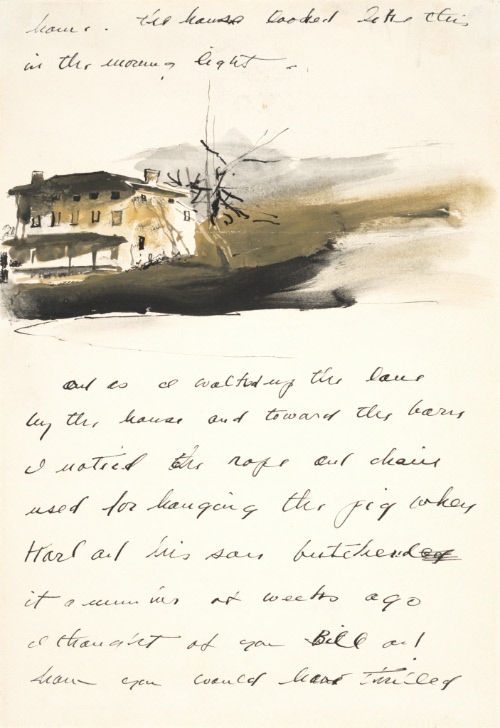 home. the house looked like this
in the morning light.
and as I walked up the lane
by the house and toward the barn
I noticed the rope and chain
used for hanging the pig when
Karl and his son butchered
it a number of weeks ago
I thought of you Bill and
how you would have thrilled